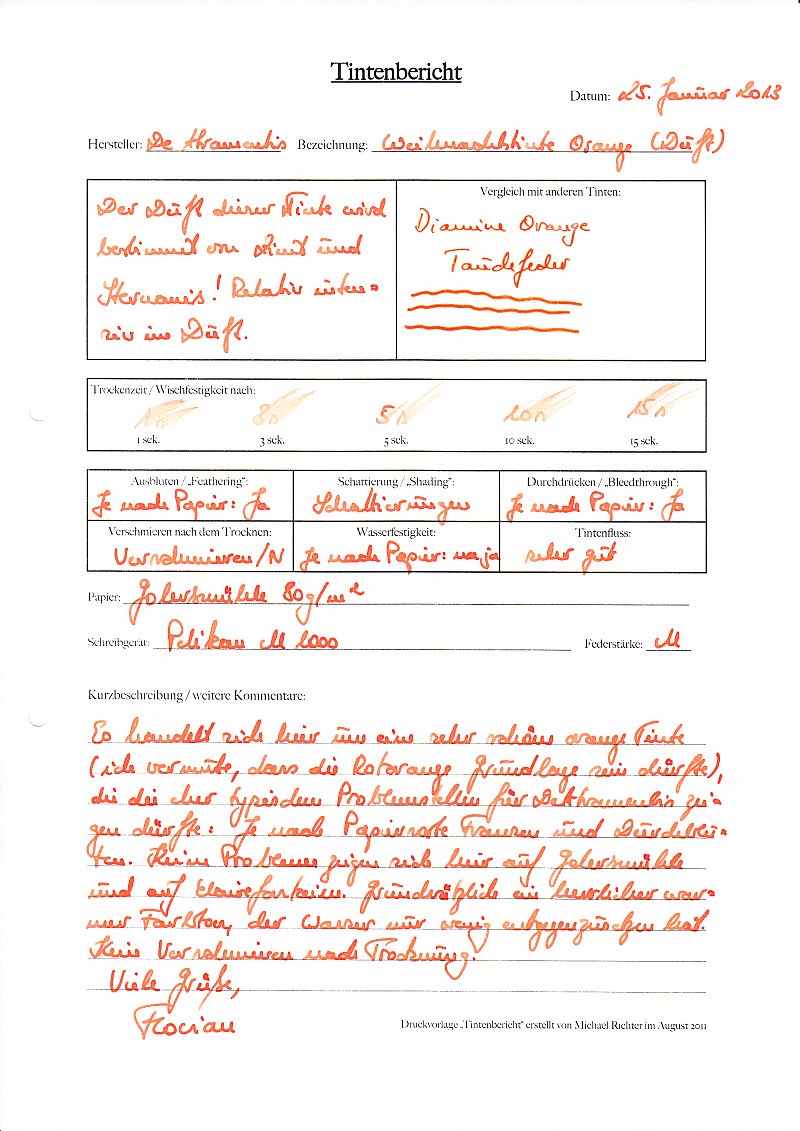 Tintenbericht
Datum: 25. Januar 2013
Hersteller: De Atramentis Bezeichnung: Weihnachtstinte Orange (Duft)
Der Duft dieser Tinte wird
bestimmt von Zimt und
Sternanis! Relativ inten-
siv im Duft.
Vergleich mit anderen Tinten:
Diamine Orange
Tauchfeder
Trockenzeit / Wischfestigkeit nach:
1s 3s 5s 10s 15s
1 sek. 3 sek. 5 sek. 10 sek. 15 sek.
Ausbluten / „Feathering": Schattierung / „Shading": Durchdrücken / „Bleedthrough":
Je nach Papier: Ja Schattierungen Je nach Papier: Ja
Verschmieren nach dem Trocknen: Wasserfestigkeit: Tintenfluss:
Verschmieren/N Je nach Papier: naja sehr gut
Papier: 80g/m²
Schreibgerät: Pelikan M 1000 Federstärke: M
Kurzbeschreibung / weitere Kommentare:
Es handelt sich hier um eine sehr schöne orange Tinte
(ich vermute, dass die Rotorange Grundlage sein dürfte),
die die eher typischen Problemstellen für DeAtramentis zei-
gen dürfte: Je nach Papiersorte Fransen und Durchblu-
ten. Keine Probleme zeigen sich hier auf
und auf Clairefontaine. Grundsätzlich ein herrlicher war-
mer Farbton, der Wasser nur wenig entgegenzusetzen hat.
Kein Verschmieren nach Trocknung.
Viele Grüße,
Florian
Druckvorlage „Tintenbericht" erstellt von Michael Richter im August 2011